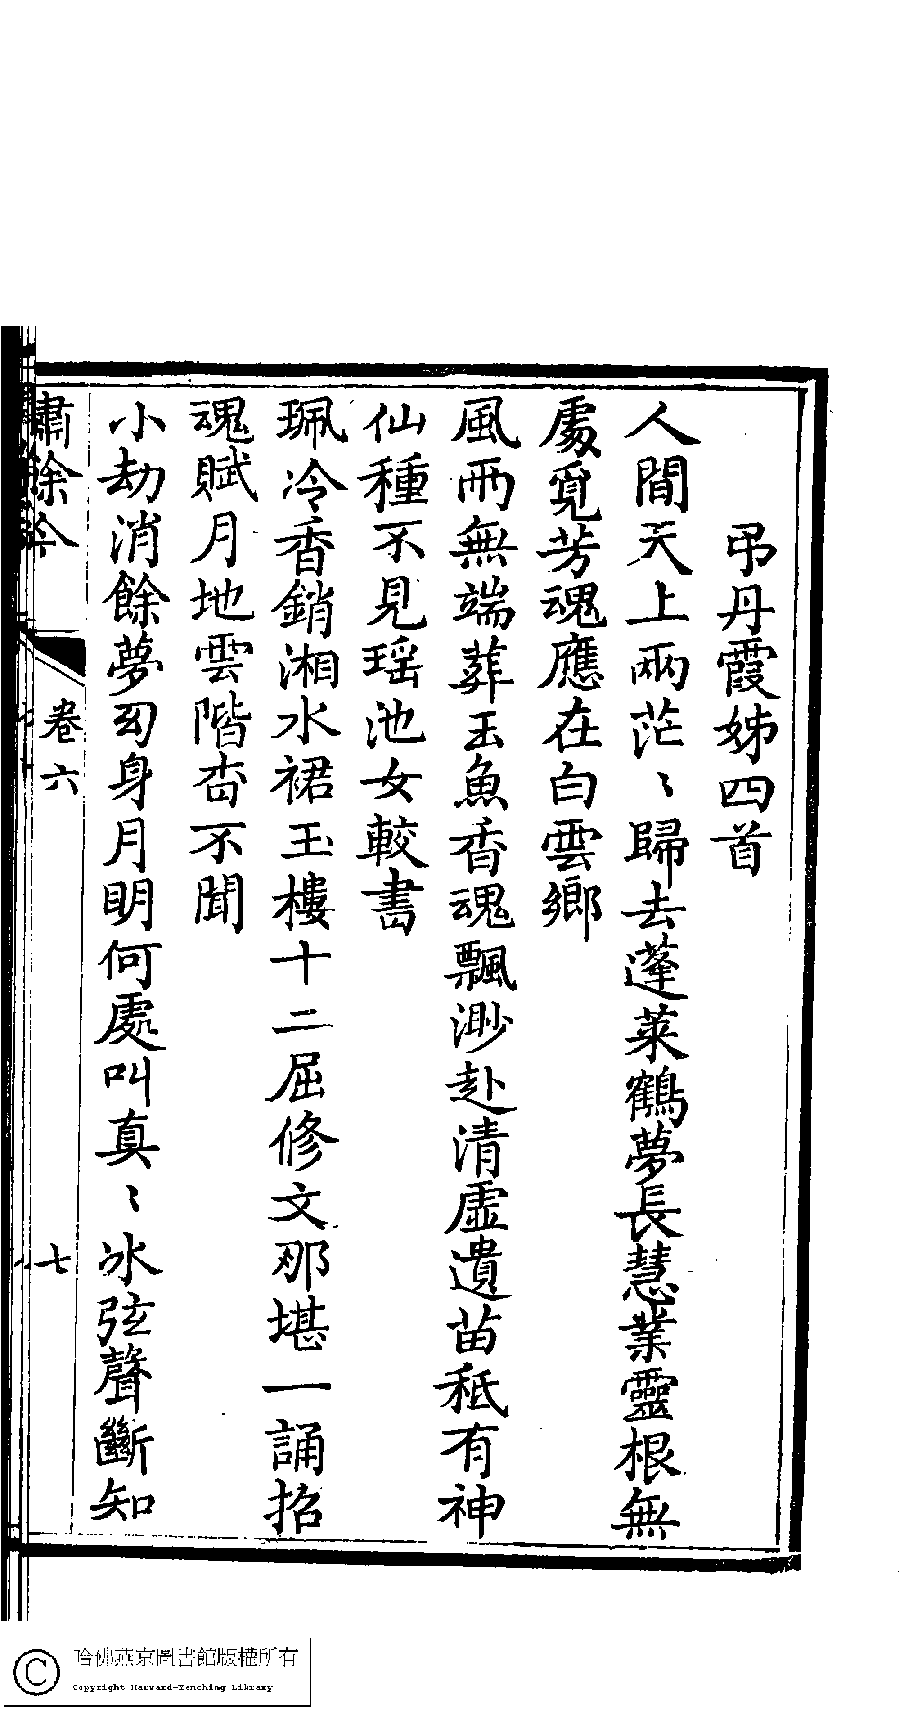 弔丹霞姊四首
人間天上兩茫〻歸去蓬萊鶴夢長慧業靈根無
處覓芳魂應在白雲鄉
風雨無端葬玉魚香魂飄渺赴清虛遺苗秪有神
仙種不見瑶池女較書
珮冷香銷湘水裙玉樓十二屈修文那堪一誦招
魂賦月地雲階杳不聞
小劫消餘夢幻身月明何處叫真〻冰弦聲斷知
嘯餘吟
卷六
七
哈佛燕京圖書館版權所有
Copyright Harvard-Yenching Library